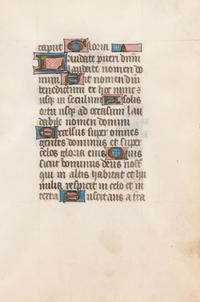 capitu Gloria
Laudate pueri dnm
laudate nomen do
mini Sit nomen dni
benedictum ex hoc nunc z
usq in seculum A solis
ortu usq ad occasum lau
dabile nomen domini
Excelsus super omnes
gentes dominus et super
celos gloria eius Quis
sicut dominus deus nost
qui in altis habitat et hu
milia respicit in celo et in
terra Suscitans a tra